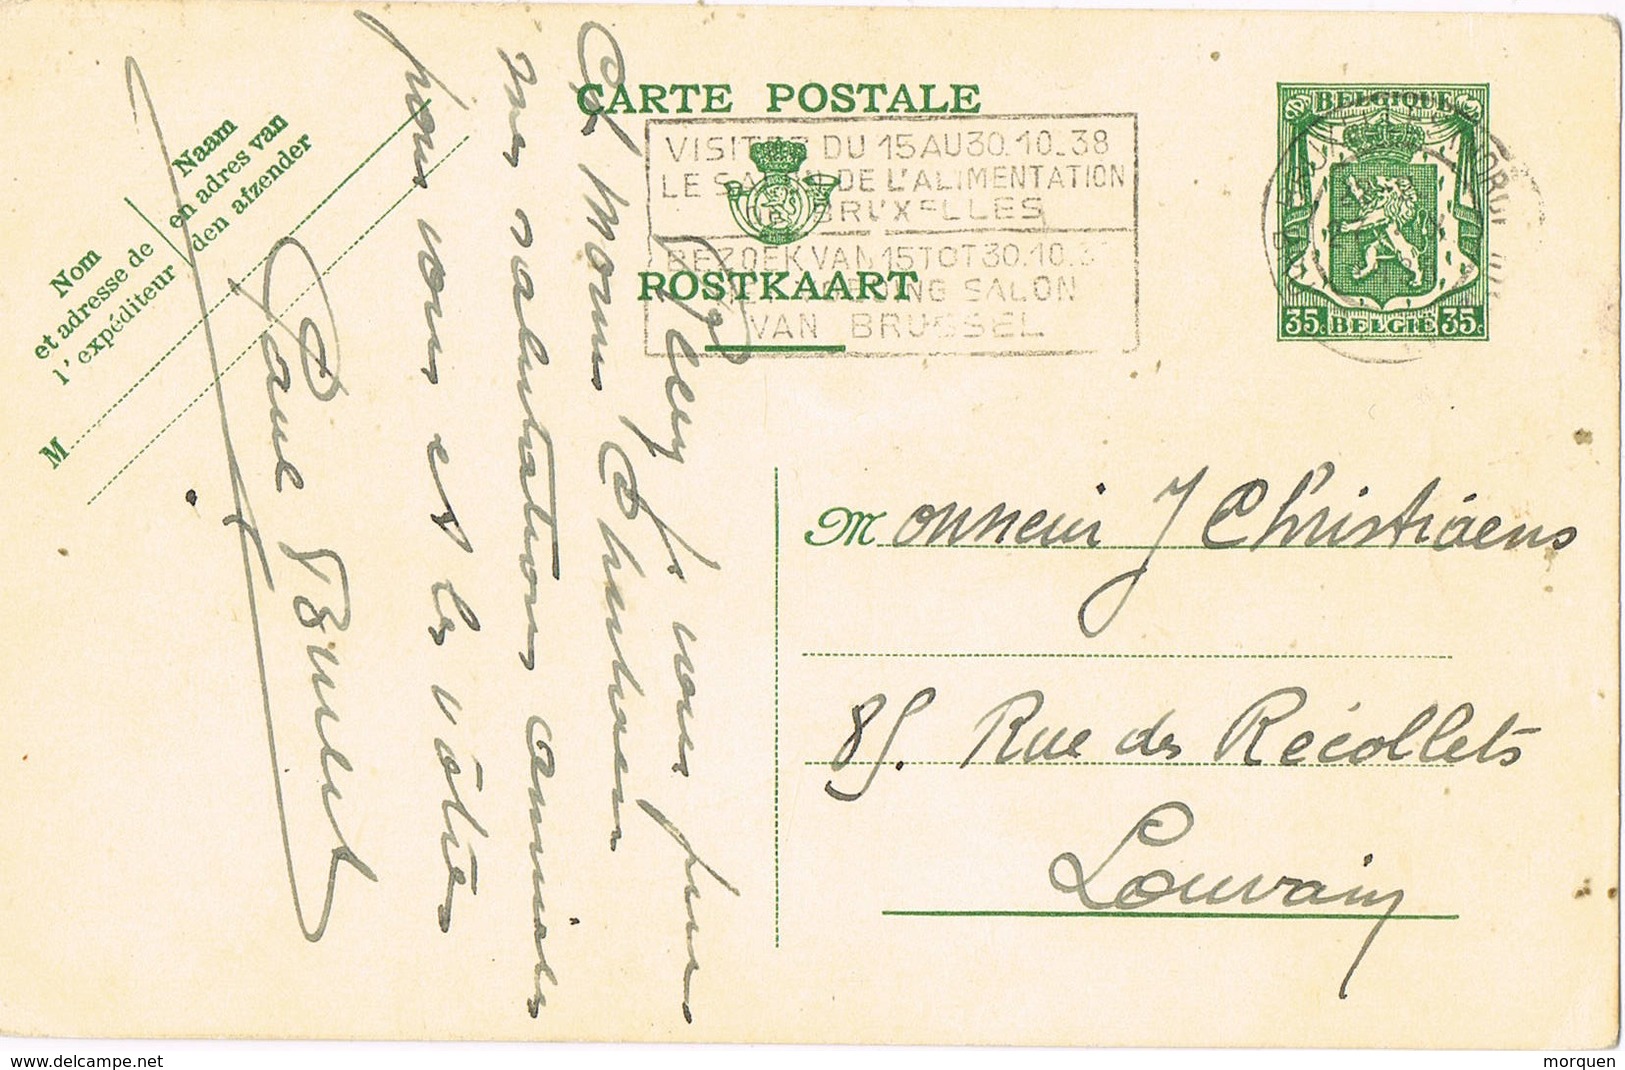 CARTE POSTALE
POSTKAART
VISITEZ DU 15 AU 30.10.38
LE SALON DE L'ALIMENTATION
DE BRUXELLES
BEZOEK VAN 15 TOT 30.10.3
SALON
VAN BRUSSEL
BELGIQUE
35c BELGIË 35c
Nom
et adresse de
l'expéditeur
Naam
en adres van
den afzender
M
Monsieur J Christiaens
85. Rue des Récollets
Louvain
Cher Monsieur Christiaens
mes salutations amicales
pour vous et les vôtres
Paul
delcampe.net
morquen